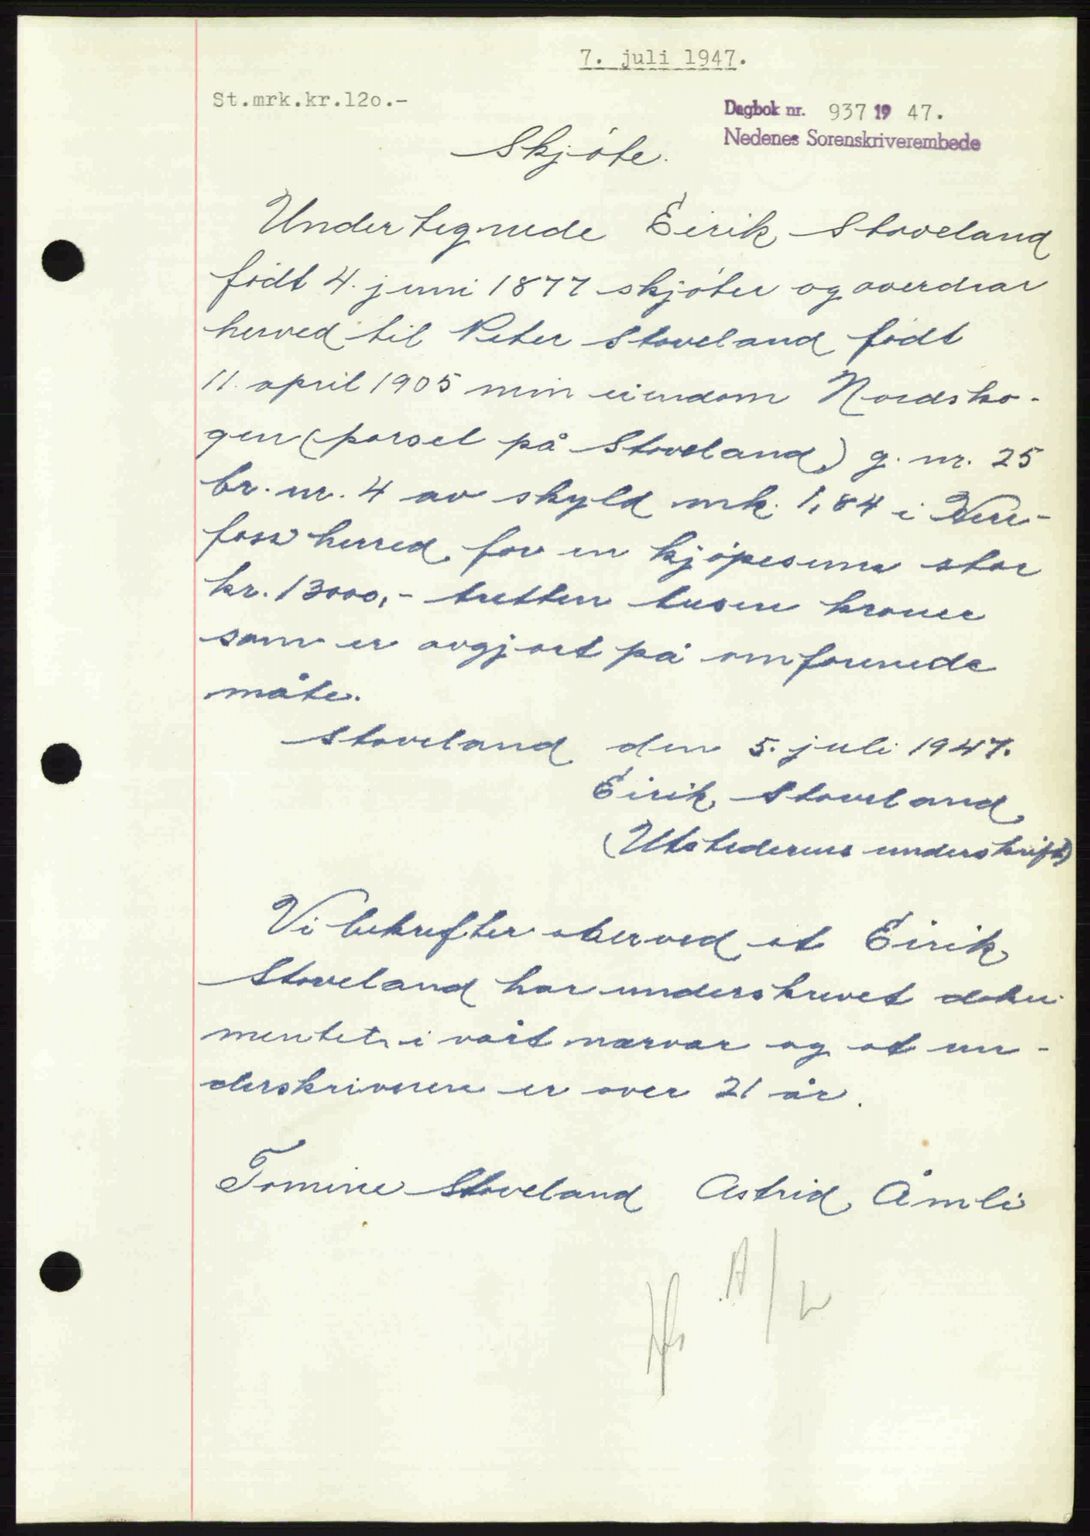 7. juli 1947.
St.mrk.kr.12o.-
Dagbok nr. 937 19 47.
Nedenes Sorenskriverembede
Skjöte.
Undertegnede Eirik Stoveland
födt 4. juni 1877 skjöter og overdrar
herved til Peter Stoveland födt
11. april 1905 min eiendom Nordsko-
gen (parsel på Stoveland) g. nr. 25
br. nr. 4 av skyld mk. 1,84 i Here-
foss herred, for en kjöpesum stor
kr. 13000,- tretten tusen kroner
som er avgjort på omforenede
måte.
Stoveland den 5. juli 1947.
Eirik Stoveland
(Utstederens underskrift)
Vi bekrefter herved at Eirik
Stoveland har underskrevet doku-
mentet i vårt nærvær og at un-
derskriveren er over 21 år.
Tomine Stoveland Astrid Åmli